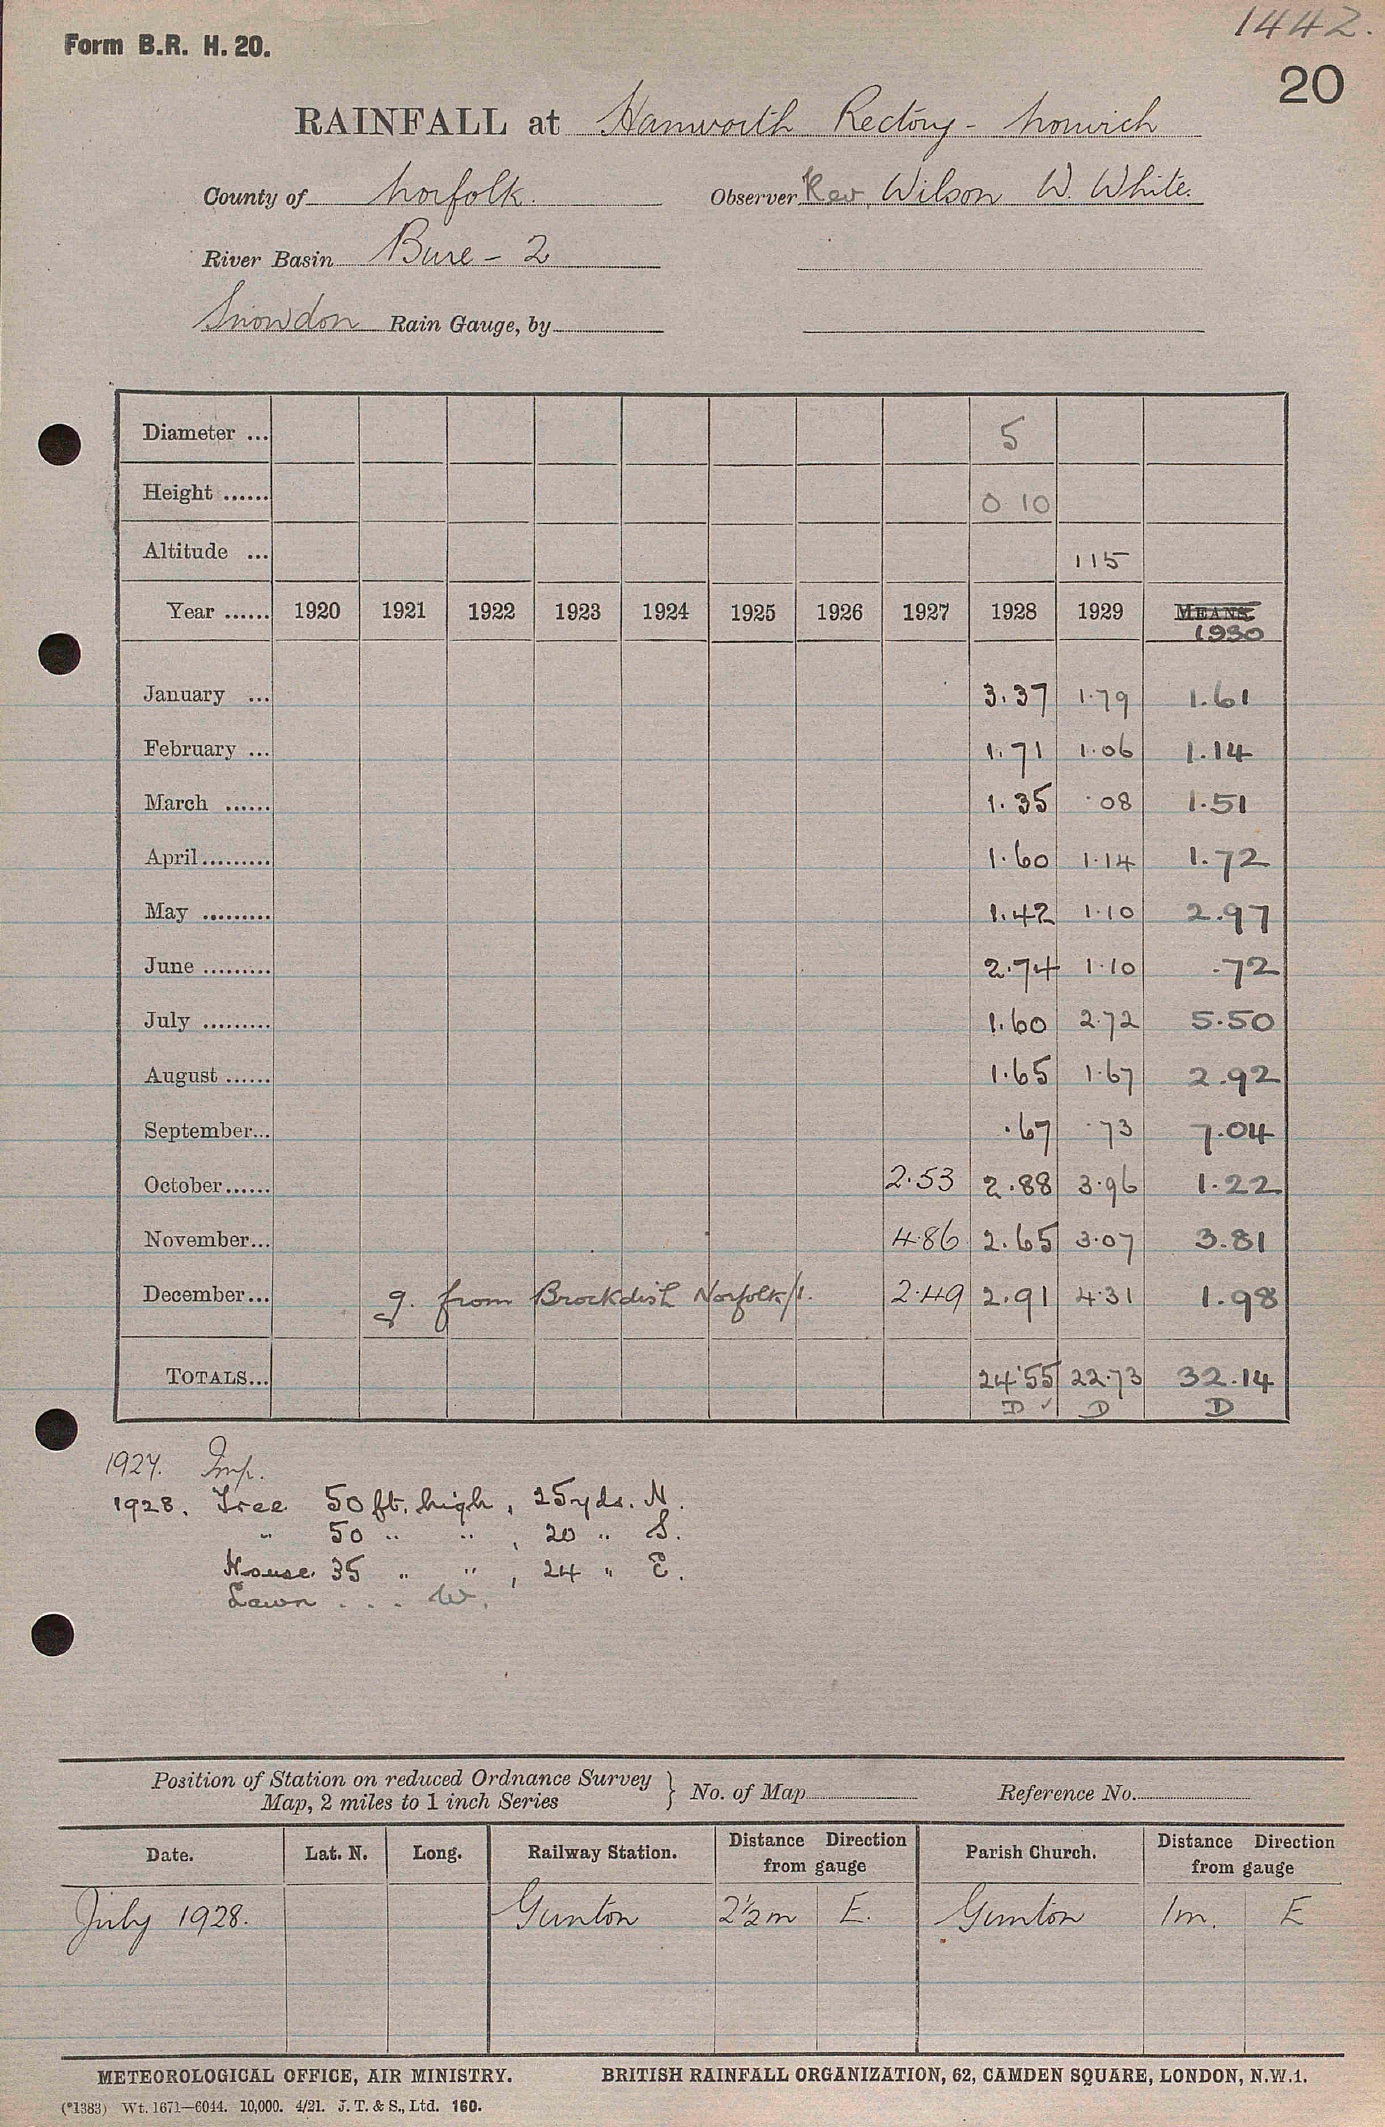 1442.
Form B.R. H. 20.
20
RAINFALL at Hanworth Rectory - Norwich
County of Norfolk.
Observer Rev. Wilson W. White.
River Basin Bure - 2
Snowdon Rain Gauge, by
Diameter ... 5
Height ...... 0 10
Altitude ... 115
Year ...... 1920 1921 1922 1923 1924 1925 1926 1927 1928 1929 MEANS.
1930
January ... 3.37 1.79 1.61
February ... 1.71 1.06 1.14
March ...... 1.35 .08 1.51
April......... 1.60 1.14 1.72
May ......... 1.42 1.10 2.97
June ......... 2.74 1.10 .72
July ......... 1.60 2.72 5.50
August ...... 1.65 1.67 2.92
September... .67 .73 7.04
October...... 2.53 2.88 3.96 1.22
November... 4.86 2.65 3.07 3.81
December... g. from Brockdish Norfolk/1. 2.49 2.91 4.31 1.98
TOTALS... 24.55 22.73 32.14
D ✓ D D
1927. Imp.
1928. Tree 50 ft. high, 25 yds. N.
" 50 " " , 20 " S.
House 35 " " , 24 " E.
Lawn . . . W.
Position of Station on reduced Ordnance Survey
Map, 2 miles to 1 inch Series } No. of Map Reference No.
Date. Lat. N. Long. Railway Station. Distance Direction from gauge Parish Church. Distance Direction from gauge
July 1928. Gunton 2½m E. Gunton 1m. E
METEOROLOGICAL OFFICE, AIR MINISTRY. BRITISH RAINFALL ORGANIZATION, 62, CAMDEN SQUARE, LONDON, N.W.1.
(*1383) Wt. 1671—6044. 10,000. 4/21. J. T. & S., Ltd. 160.